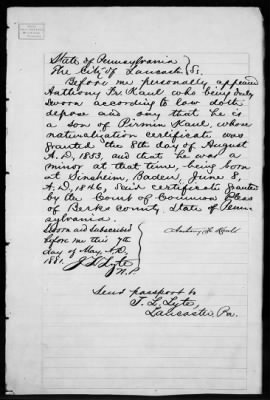 State of Pennsylvania }
The City of Lancaster } SS.
Before me personally appeared
Anthony Fr. Kaul who being duly
sworn according to law doth
depose and say that he is
a son of Pirmin Kaul, whose
naturalization certificate was
granted the 8th day of August
A.D., 1853, and that he was a
minor at that time, being born
at Sinsheim, Baden, June 8,
A.D. 1846, said certificate granted
by the Court of Common Pleas
of Berks county, State of Penn-
sylvania.
Sworn and Subscribed
before me this 7th
day of May, A.D.
1881.
J L Lyte
N.P.
Anthony F Kaul
Send passport to
J. L. Lyte,
Lancaster, Pa.